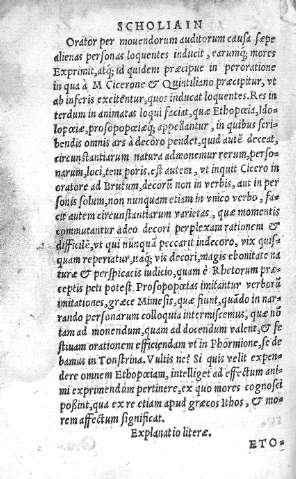 SCHOLIA IN
Orator per mouendorum auditorum causa sæpe
alienas personas loquentes inducit, earumq; mores
Exprimit, atq; id quidem præcipue in peroratione
in qua à M Cicerone & Quintiliano præcipitur, vt
ab inferis excitẽtur, quos inducat loquentes. Res in
terdum in animatas loqui faciat, quæ Ethopœia, Ido-
lopœiæ, prosopopœiæq; appellantur, in quibus scri-
bendis omnis ars à decoro pendet, quid autẽ deceat,
circunstantiarum natura admonemur rerum, perso-
narum, loci, tem poris. est autem, vt inquit Cicero in
oratore ad Brutum, decorũ non in verbis, aut in per
sonis solum, non nunquam etiam in vnico verbo, fa-
cit autem circunstantiarum varietas, quæ momentis
commutantur adeo decori perplexam rationem &
difficilẽ, vt qui nunquã peccarit indecoro, vix quis-
quam reperiatur, naq; vis decori, magis ebonitate na
turæ & perspicacis iudicio, quam è Rhetorum præ-
ceptis peti potest. Prosopopœias imitantur verborũ
imitationes, græce Mimesis, quæ fiunt, quãdo in nar-
rando personarum colloquia intermiscemus, quæ nõ
tam ad monendum, quam ad docendum valent, & fe
stiuam orationem efficiendam vt in Phormione, se de
bamus in Tonstrina. Vultis ne? Si quis velit expen-
dere omnem Ethopœiam, intelliget ad effectum ani-
mi exprimendam pertinere, ex quo mores cognosci
possint, qua ex re etiam apud græcos Ithos, & mo-
rem affectum significat.
Explanatio literæ.
ETO-